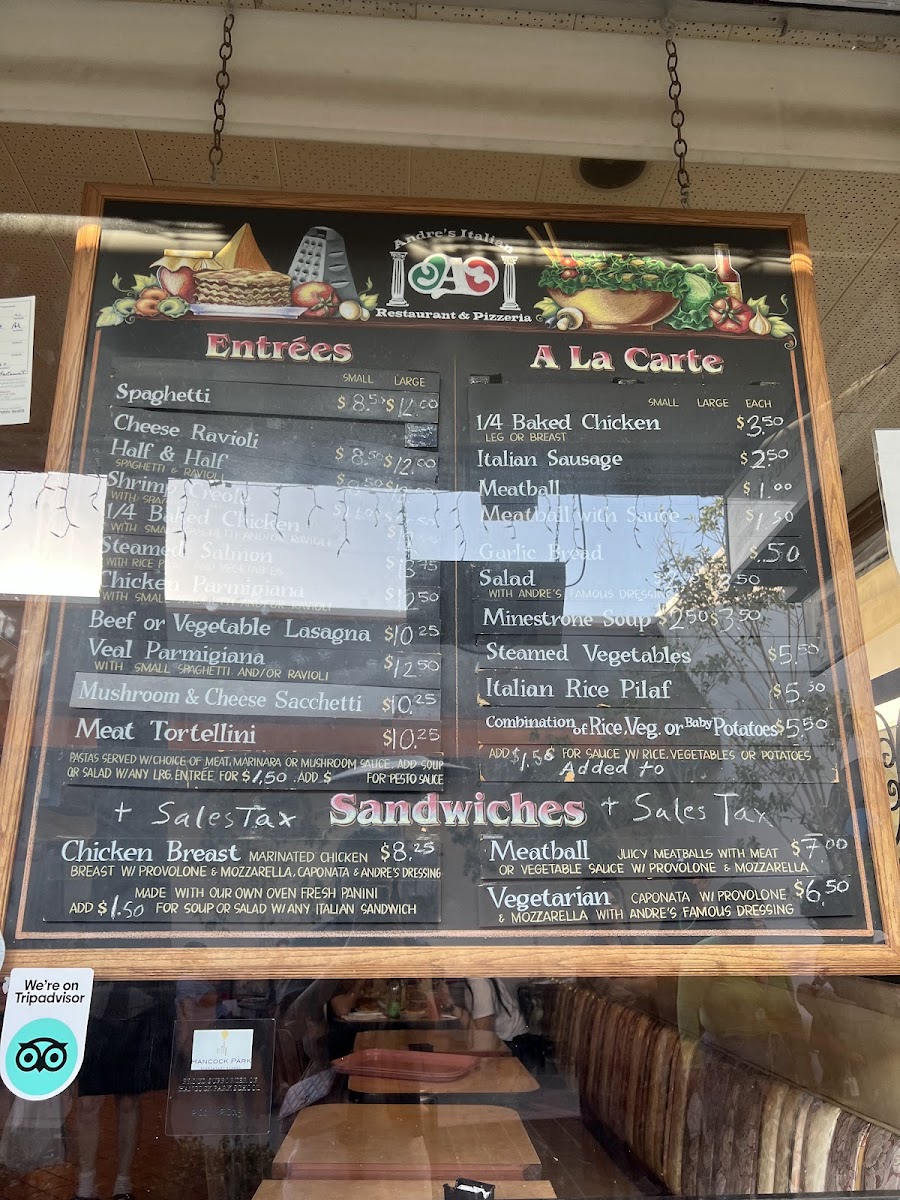 Andre's Italian
A
Restaurant & Pizzeria
Entrées
SMALL LARGE
Spaghetti $8.50 $12.00
Cheese Ravioli $8.50 $12.00
Half & Half
SPAGHETTI & RAVIOLI
Shrimp Creole
1/4 Baked Chicken
WITH SMALL SPAGHETTI AND/OR RAVIOLI
Steamed Salmon
WITH RICE PILAF AND VEGETABLES
Chicken Parmigiana
WITH SMALL SPAGHETTI AND/OR RAVIOLI $12.50
Beef or Vegetable Lasagna $10.25
Veal Parmigiana $12.50
WITH SMALL SPAGHETTI AND/OR RAVIOLI
Mushroom & Cheese Sacchetti $10.25
Meat Tortellini $10.25
PASTAS SERVED W/CHOICE OF MEAT, MARINARA OR MUSHROOM SAUCE. ADD SOUP
OR SALAD W/ANY LRG. ENTRÉE FOR $1.50. ADD $ FOR PESTO SAUCE
A La Carte
SMALL LARGE EACH
1/4 Baked Chicken $3.50
LEG OR BREAST
Italian Sausage $2.50
Meatball $1.00
Meatball with Sauce $1.50
Garlic Bread $.50
Salad 3.50
WITH ANDRE'S FAMOUS DRESSING
Minestrone Soup $2.50 $3.50
Steamed Vegetables $5.50
Italian Rice Pilaf $5.50
Combination of Rice, Veg. or Baby Potatoes $5.50
ADD $1.50 FOR SAUCE W/ RICE, VEGETABLES OR POTATOES
Added to
+ Sales Tax Sandwiches + Sales Tax
Chicken Breast MARINATED CHICKEN $8.25
BREAST W/ PROVOLONE & MOZZARELLA, CAPONATA & ANDRE'S DRESSING
MADE WITH OUR OWN OVEN FRESH PANINI
ADD $1.50 FOR SOUP OR SALAD W/ ANY ITALIAN SANDWICH
Meatball JUICY MEATBALLS WITH MEAT $7.00
OR VEGETABLE SAUCE W/ PROVOLONE & MOZZARELLA
Vegetarian CAPONATA W/ PROVOLONE $6.50
& MOZZARELLA WITH ANDRE'S FAMOUS DRESSING
We're on
Tripadvisor
HANCOCK PARK
PROUD SUPPORTER OF
HANCOCK PARK SCHOOL